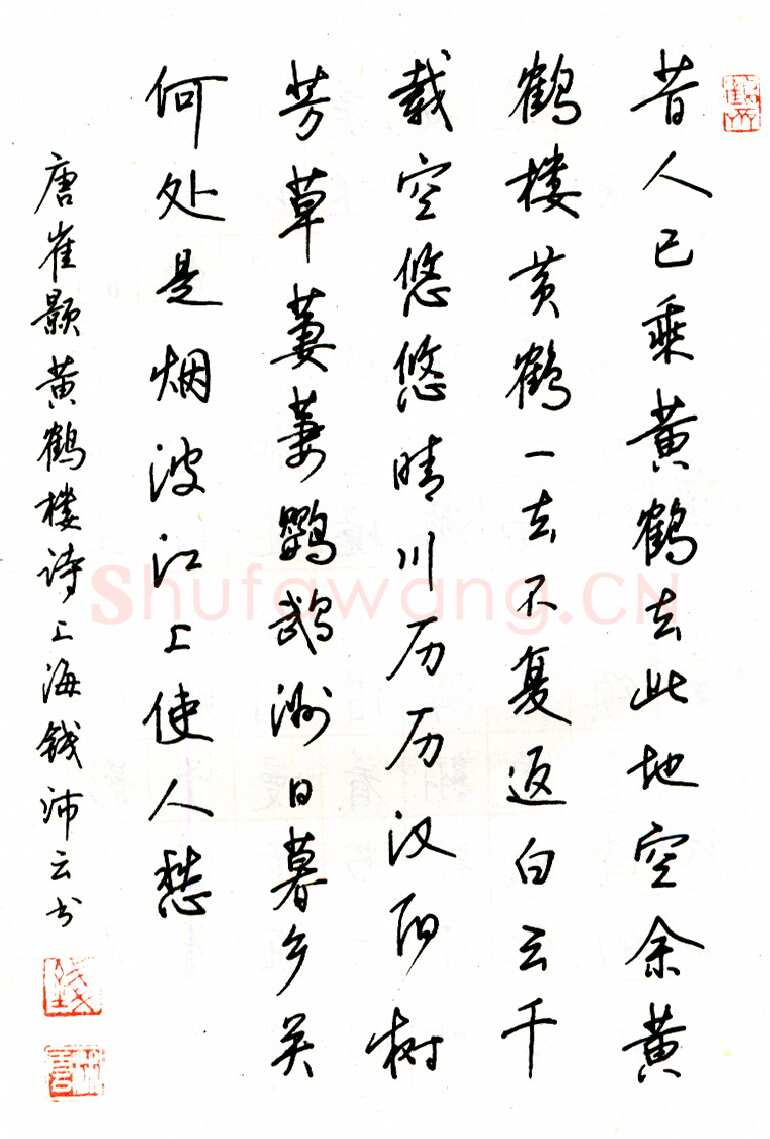 昔人已乘黄鹤去此地空余黄
鹤楼黄鹤一去不复返白云千
载空悠悠晴川历历汉阳树
芳草萋萋鹦鹉洲日暮乡关
何处是烟波江上使人愁
唐崔颢黄鹤楼诗上海钱沛云书
Shufawang.CN